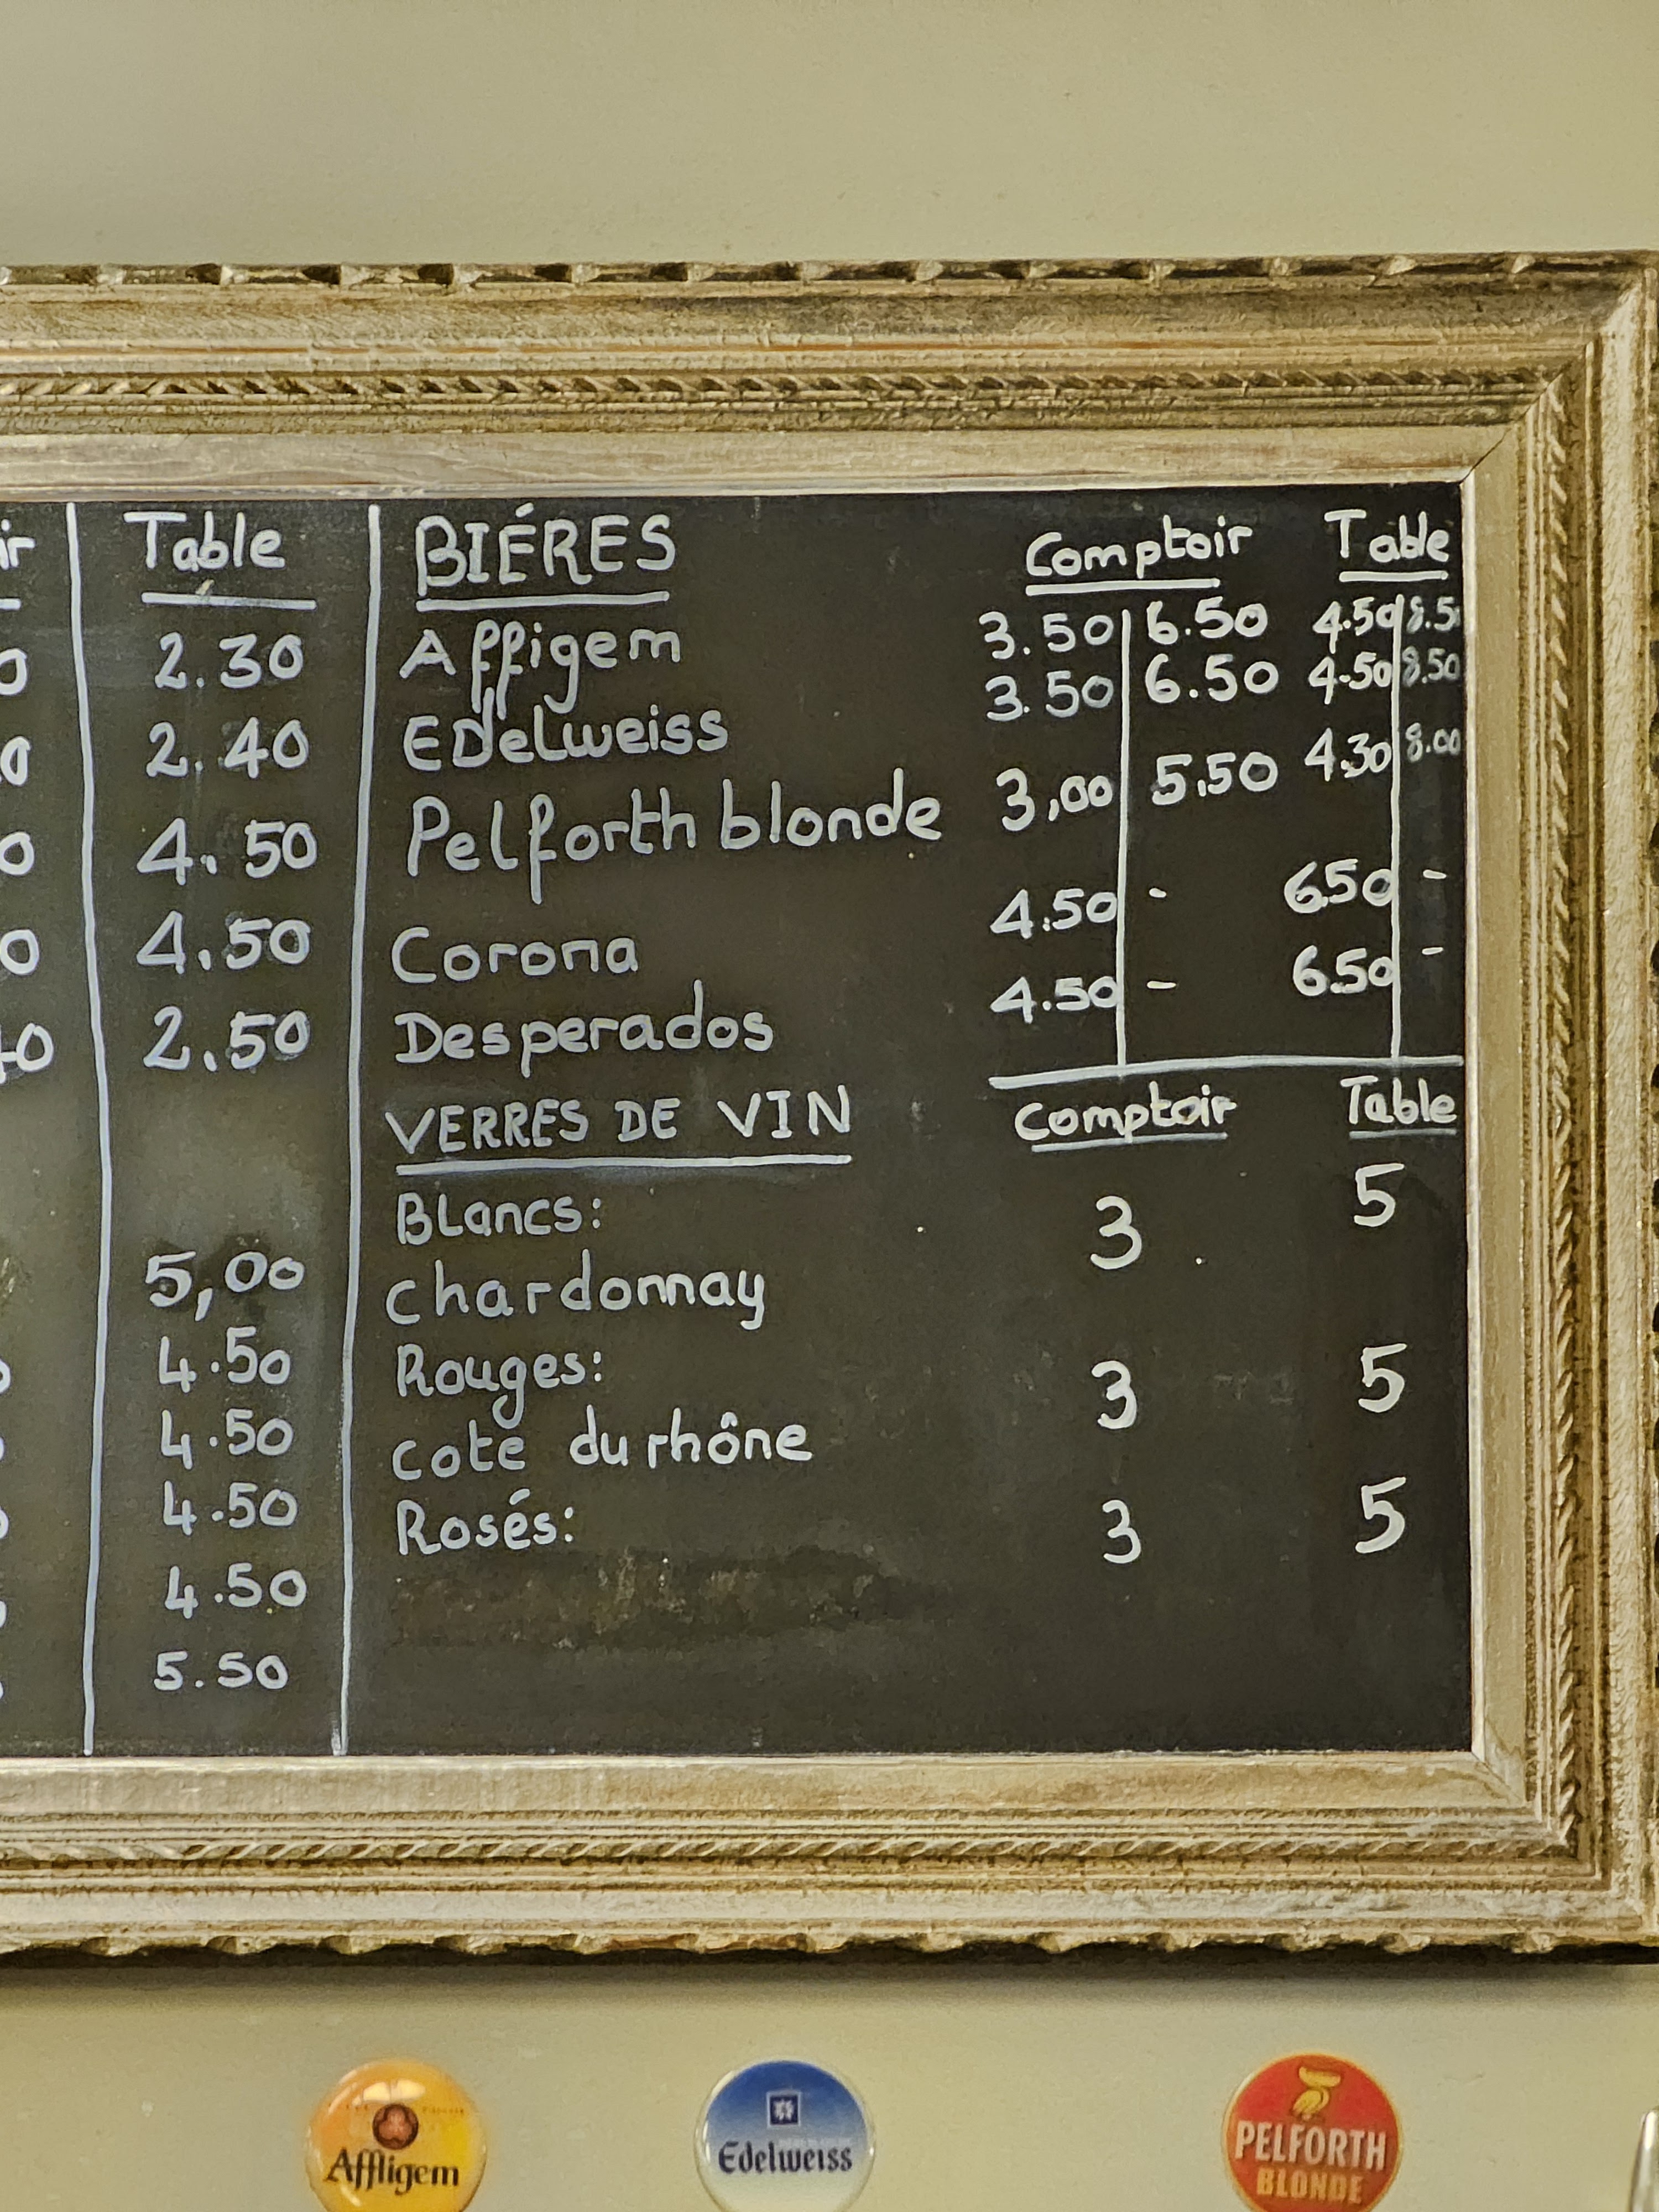 Table
2.30
2.40
4.50
4.50
2.50
5,00
4.50
4.50
4.50
4.50
5.50
BIÉRES Comptoir Table
Affigem 3.50 6.50 4.50 8.5
Edelweiss 3.50 6.50 4.50 8.50
Pelforth blonde 3,00 5.50 4.30 8.00
Corona 4.50 - 6.50 -
Desperados 4.50 - 6.50 -
VERRES DE VIN Comptoir Table
Blancs: 3 5
chardonnay
Rouges: 3 5
cote du rhône
Rosés: 3 5
Affligem
Edelweiss
PELFORTH
BLONDE